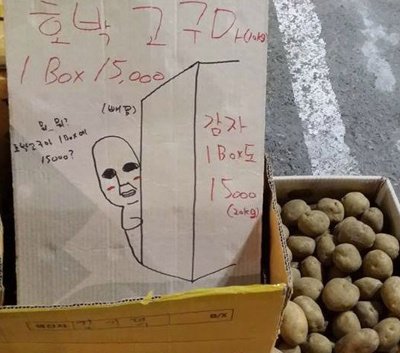 호박 고구마 (10kg)
1 Box 15,000
(빼꼼)
뭐, 뭐?
호박고구마 1 Box에
15000?
감자
1 Box도
15000
(20kg)